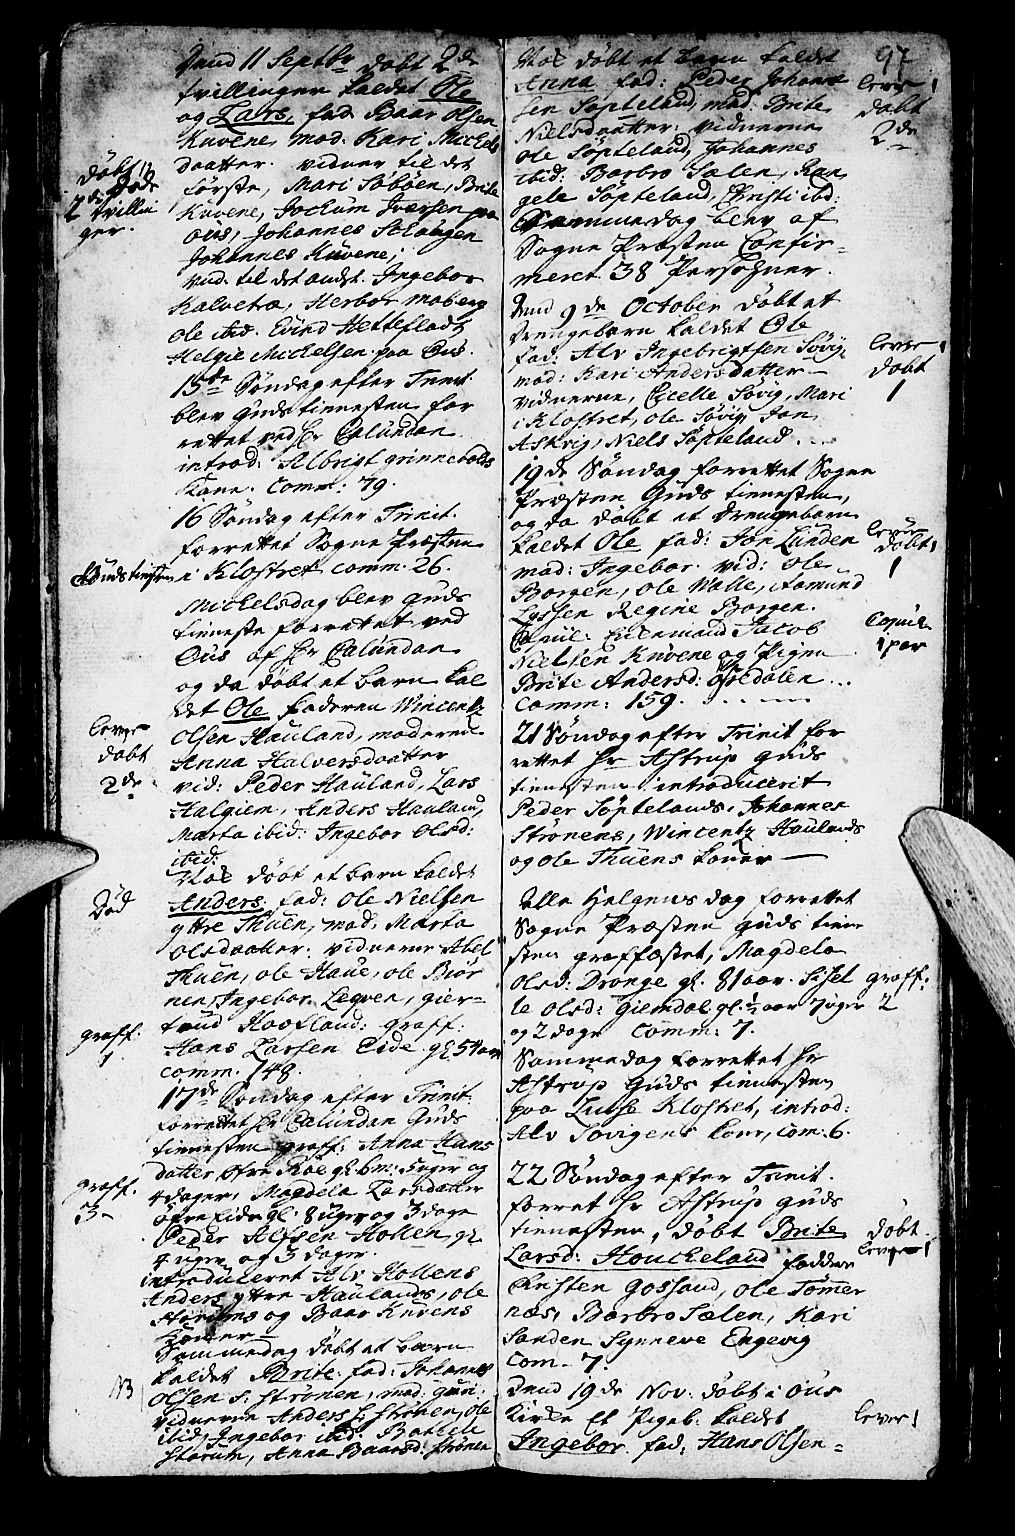 Dend 11 Septbr døbt 2de
tvillinger kaldet Ole
og Lars, fad. Baar Olsen
Kuvene, mod. Kari Michels
daatter. vidner til det
første, Mari Søbøen, Brite
Kuvene, Jochum Iversen paa
Ous, Johannes
Johannes Kuvene,
vid. til det andet. Ingebor
Kalvetræ, Herbor
Ole ibid. Eivind Hettefladt
Helgie Michelsen paa Ous.
døbt 12
2de døde
tvillin
ger.
15de Søndag efter Trinit.
blev Guds tienesten for
rettet ved Hr Calundan
introd: Albrigt grinnevolds
Kone. Comm: 79.
16 Søndag efter Trinit.
forrettet Sogne Præsten
Gudstienesten i Klostret comm. 26.
Michelsdag blev Guds
tieneste forrettet ved
Ous af Hr Calundan
og da døbt et barn kal
det Ole faderen Wincentz
Olsen Hauland, moderen
Anna Halversdaatter
vid: Peder Hauland, Lars
Halgiem, Anders Hauland,
Marta ibid: Ingebor Olsd:
ibid:
lever
døbt
2de
Nok døbt et barn kaldet
Anders, fad: Ole Nielsen
yttre Thuen, mod: Marta
Olsdaatter. vidnerne Abel
Thuen, Ole Haue, Ole Biør
nen, Ingebor Legven, gier-
trud Haafland: graff:
Hans Larsen Eide gl. 54 aar
comm. 148.
Død
graff.
1
17de Søndag efter Trinit.
forrettet Hr Calundan Guds
tienesten graff: Anna Hans
datter øfre Røe gl. 6 m: 5 uger og
4 dager, Magdela Larsdatter
øfre Eide gl. 8 uger og 3 dage
Peder Alfsen Hollen, gl.
4 uger og 3 dager.
introduceret Alv Hollens
Anders yttre Haulands, Ole
Storums og Baar Kuvens
Koner
graff.
3
Sammedag døbt et barn
kaldet Brite. fad: Johannes
Olsen S: Strønen, mod: Gun:
vidnerne Anders S: Strønen, Ole
ibid, Ingebor ibid: Botele
Storum, Anna Baarsd: Strønen
NB
97
Nok døbt et barn kaldet
Anna, fad: Peder Johanne
sen Søpteland, mod: Brite
Nielsdaatter: vidnerne
Ole Søpteland, Johannes
ibid: Barbro Sælen, Ran
gele Søpteland, Christi ibd:
lever 1
døbt
2de
Sammedag blev af
Sogne Præsten Confir-
meret 38 Persohner.
Dend 9de October døbt et
Drengebarn kaldet Ole
fad: Alv Ingebrigtsen Søvig,
mod: Kari Andersdatter
vidnerne, Cicelle Søvig, Mari
i Klostret, Ole Søvig, Jon
Askvig, Niels Søpteland.
lever 1
døbt
1
19de Søndag forrettet Sogne
Præsten Guds tienesten,
og da døbt et Drengebarn
kaldet Ole fad: Jon Lunden
mod: Ingebor. vid: Ole
Borgen, Ole Walle, Aamund
Lyssen Regine Borgen.
lever
døbt 1
1
Copul: Enkemand Jacob
Nielsen Kuvene og Pigen
Brite Andersd: Øfredalen
Comm: 159.
Copul.
1 par
21 Søndag efter Trinit for
rettet Hr Astrup Guds
tienesten introducerit
Peder Søptelands, Johannes
Strønens, Wincentz Haulands
og Ole Thuens koner
Alle Helgens dag forrettet
Sogne Præsten Guds tiene
sten graffæstet, Magdela
Olsd: Drønge gl. 81 aar. Sissel
te Olsd: Giemdal gl. ½ aar 7 uger
og 2 dage Comm: 7.
graff:
2
Sammedag forrettet Hr
Astrup Guds tienesten
paa Lutse Klostret, introd:
Alv Søvigens kone, com: 6.
22 Søndag efter Trinit.
forret Hr Astrup Guds
tienesten, døbt Brite
Larsd: Houckeland faddere
Christen Gosland, Ole Tømer
næs, Barbro Sælen, Kari
Sanden Synneve Engevig
Com. 7.
døbt
lever 1
Dend 19de Nov. døbt i Ous
Kirke Et Pigeb: kaldet
Ingebor. fad: Hans Olsen
lever 1